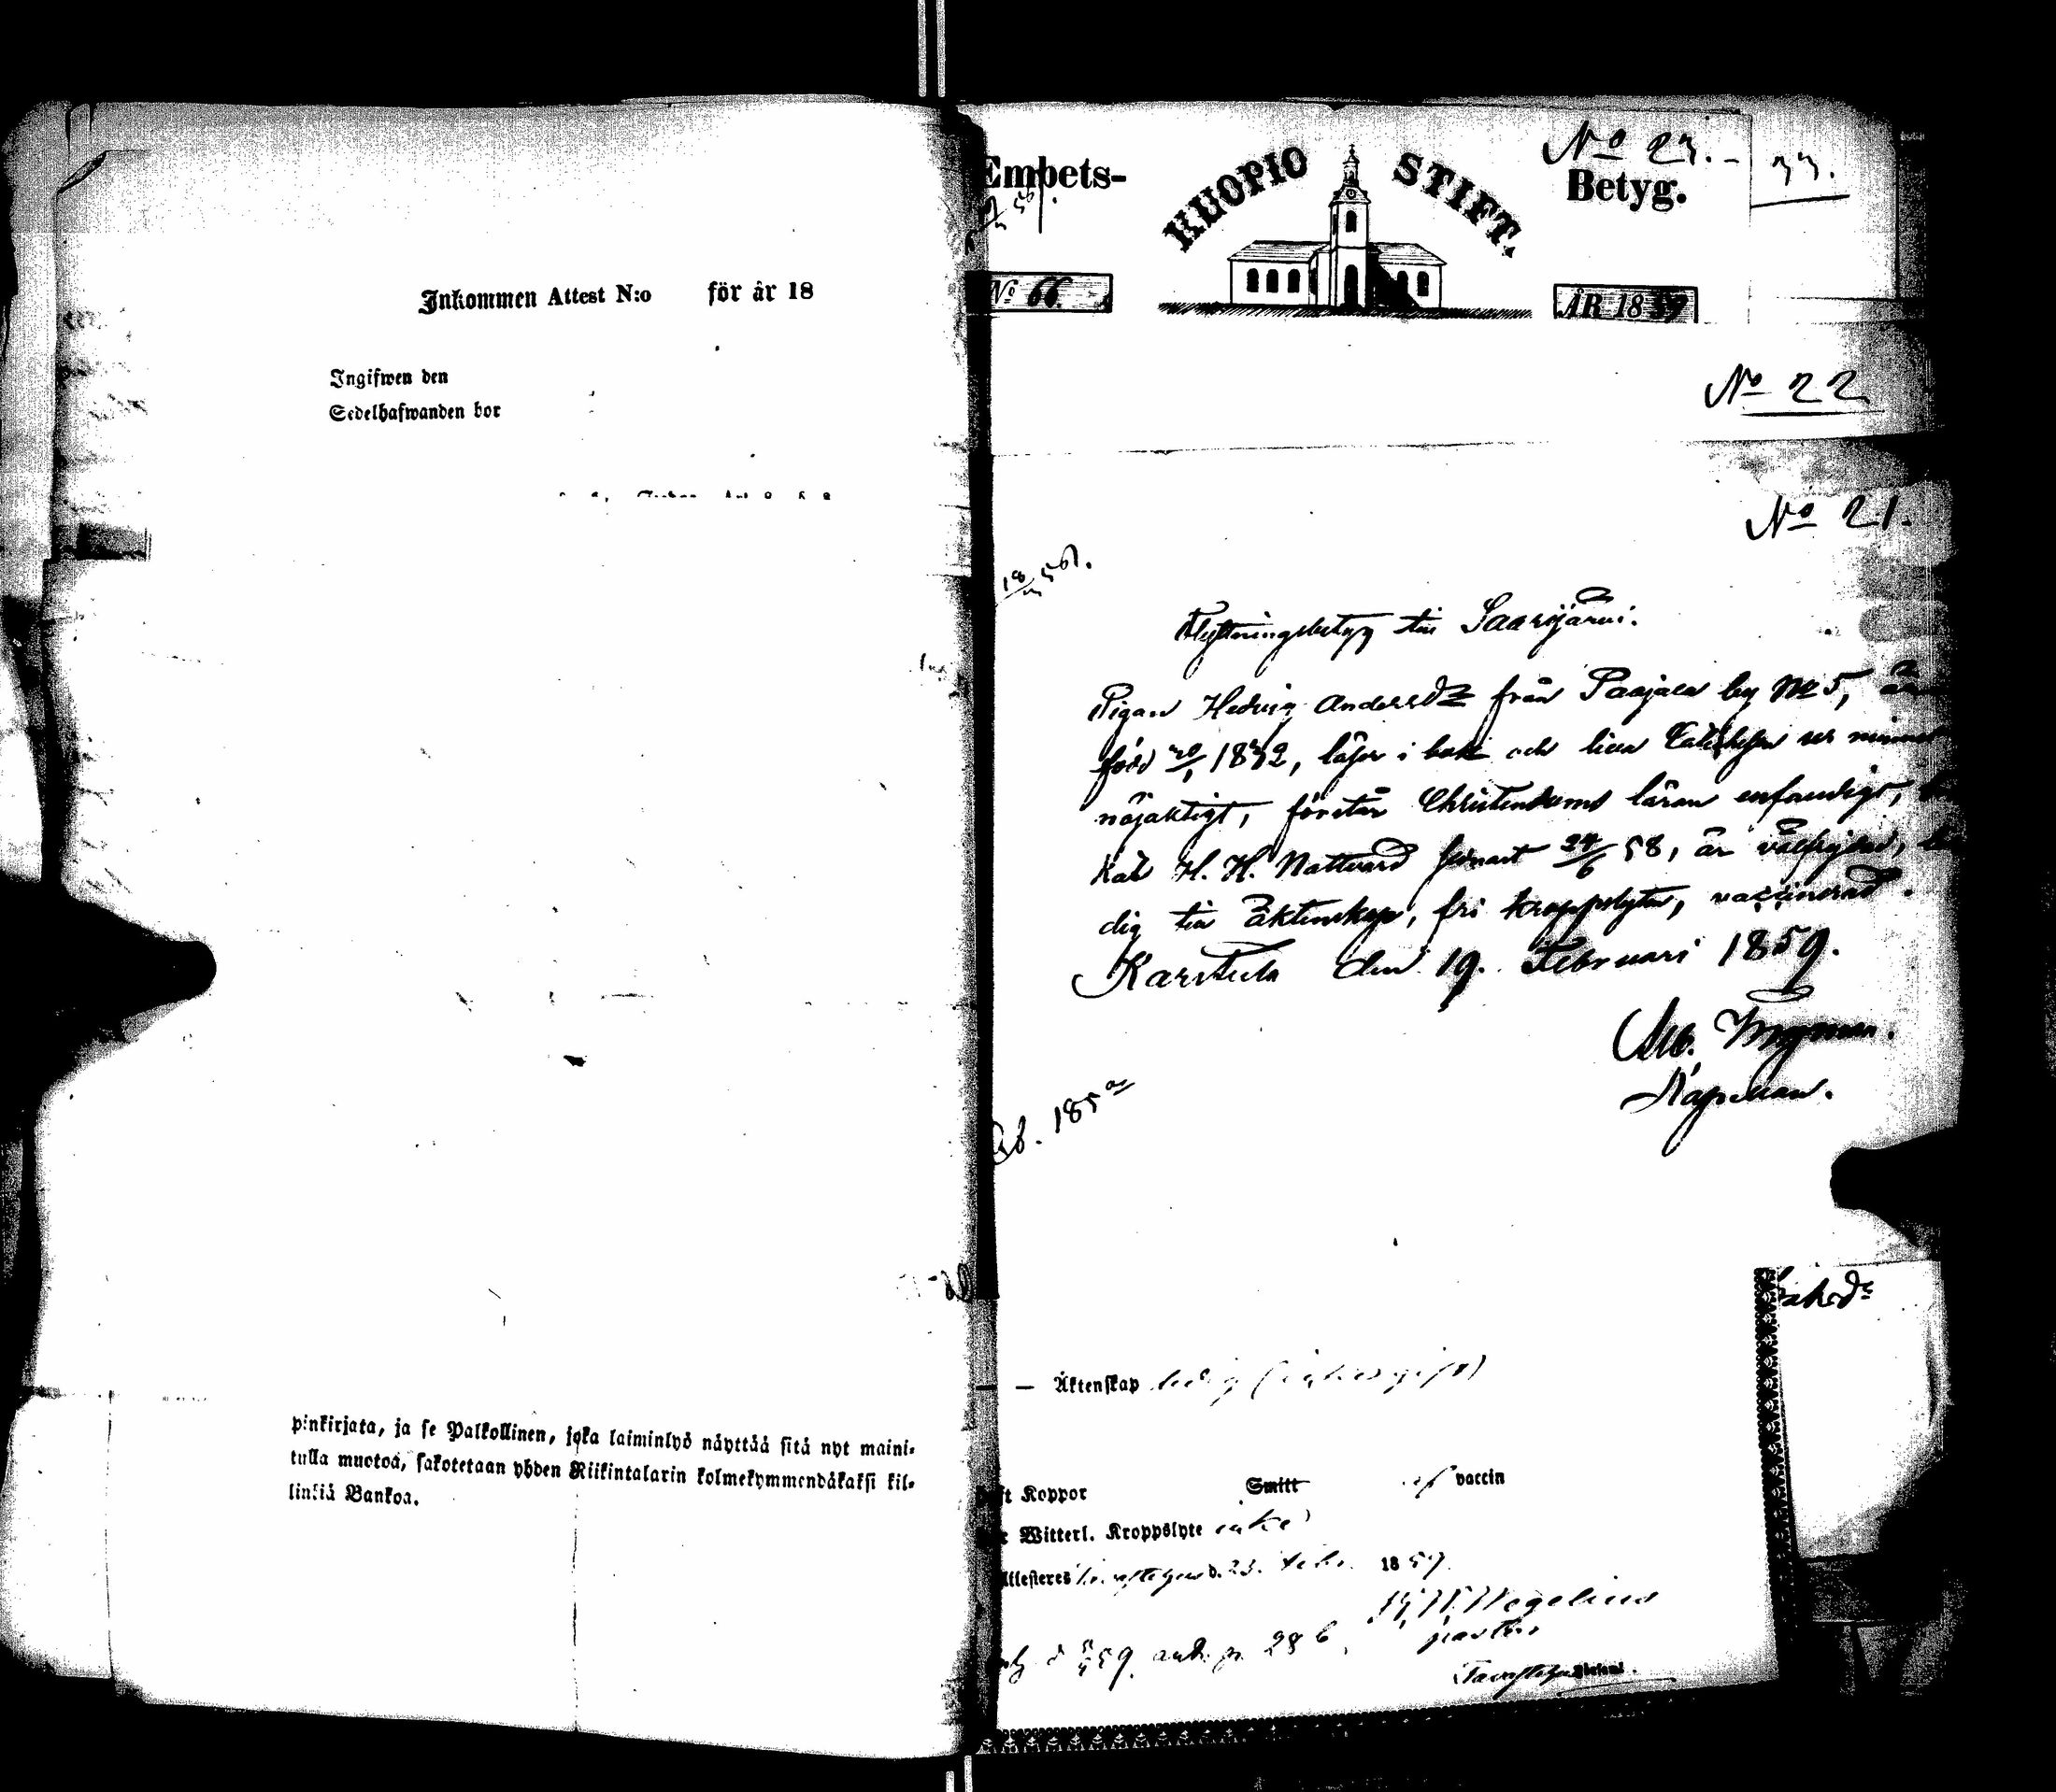 Inkommen Attest N:o för år 18
Ingifwen den
Sedelhafwanden bor
pinkirjata, ja se Palkollinen, joka laiminlyö näyttää sitä nyt maini-
tulla muotoa, sakotetaan yhden Riikintalarin kolmekymmendäkaksi kil-
linkiä Bankoa.
Embets- KUOPIO STIFT. Betyg.
No 23.-
33.
No 66.
ÅR 1859
No 22
No 21.
Flyttningsbetyg till Saarijärvi.
Pigan Hedvig Andersdr från Paajala by No 5, är
född 20/1 1832, läser i bok och lilla Catechesen ur minnet
nöjaktigt, förstår Christendoms läran enfaldigt,
kat H. H. Nattvard senast 24/6 58, är välfrejdad, le
dig till äktenskap, fri kroppslyten, vaccinerad.
Karstula den 19. Februari 1859.
Alb. Ingman.
Kapellan.
— Äktenskap ledig
haft Koppor Smitt vaccin
Witterl. Kroppslyte icke
Attesteres d. 23. Febr. 1859
Wegelius
pastor
59. p. 286